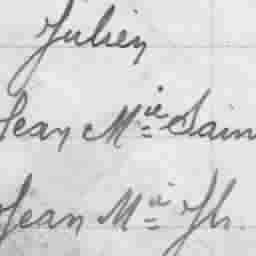 Julien
Jean Mie Sain
Jean Mie Jh.